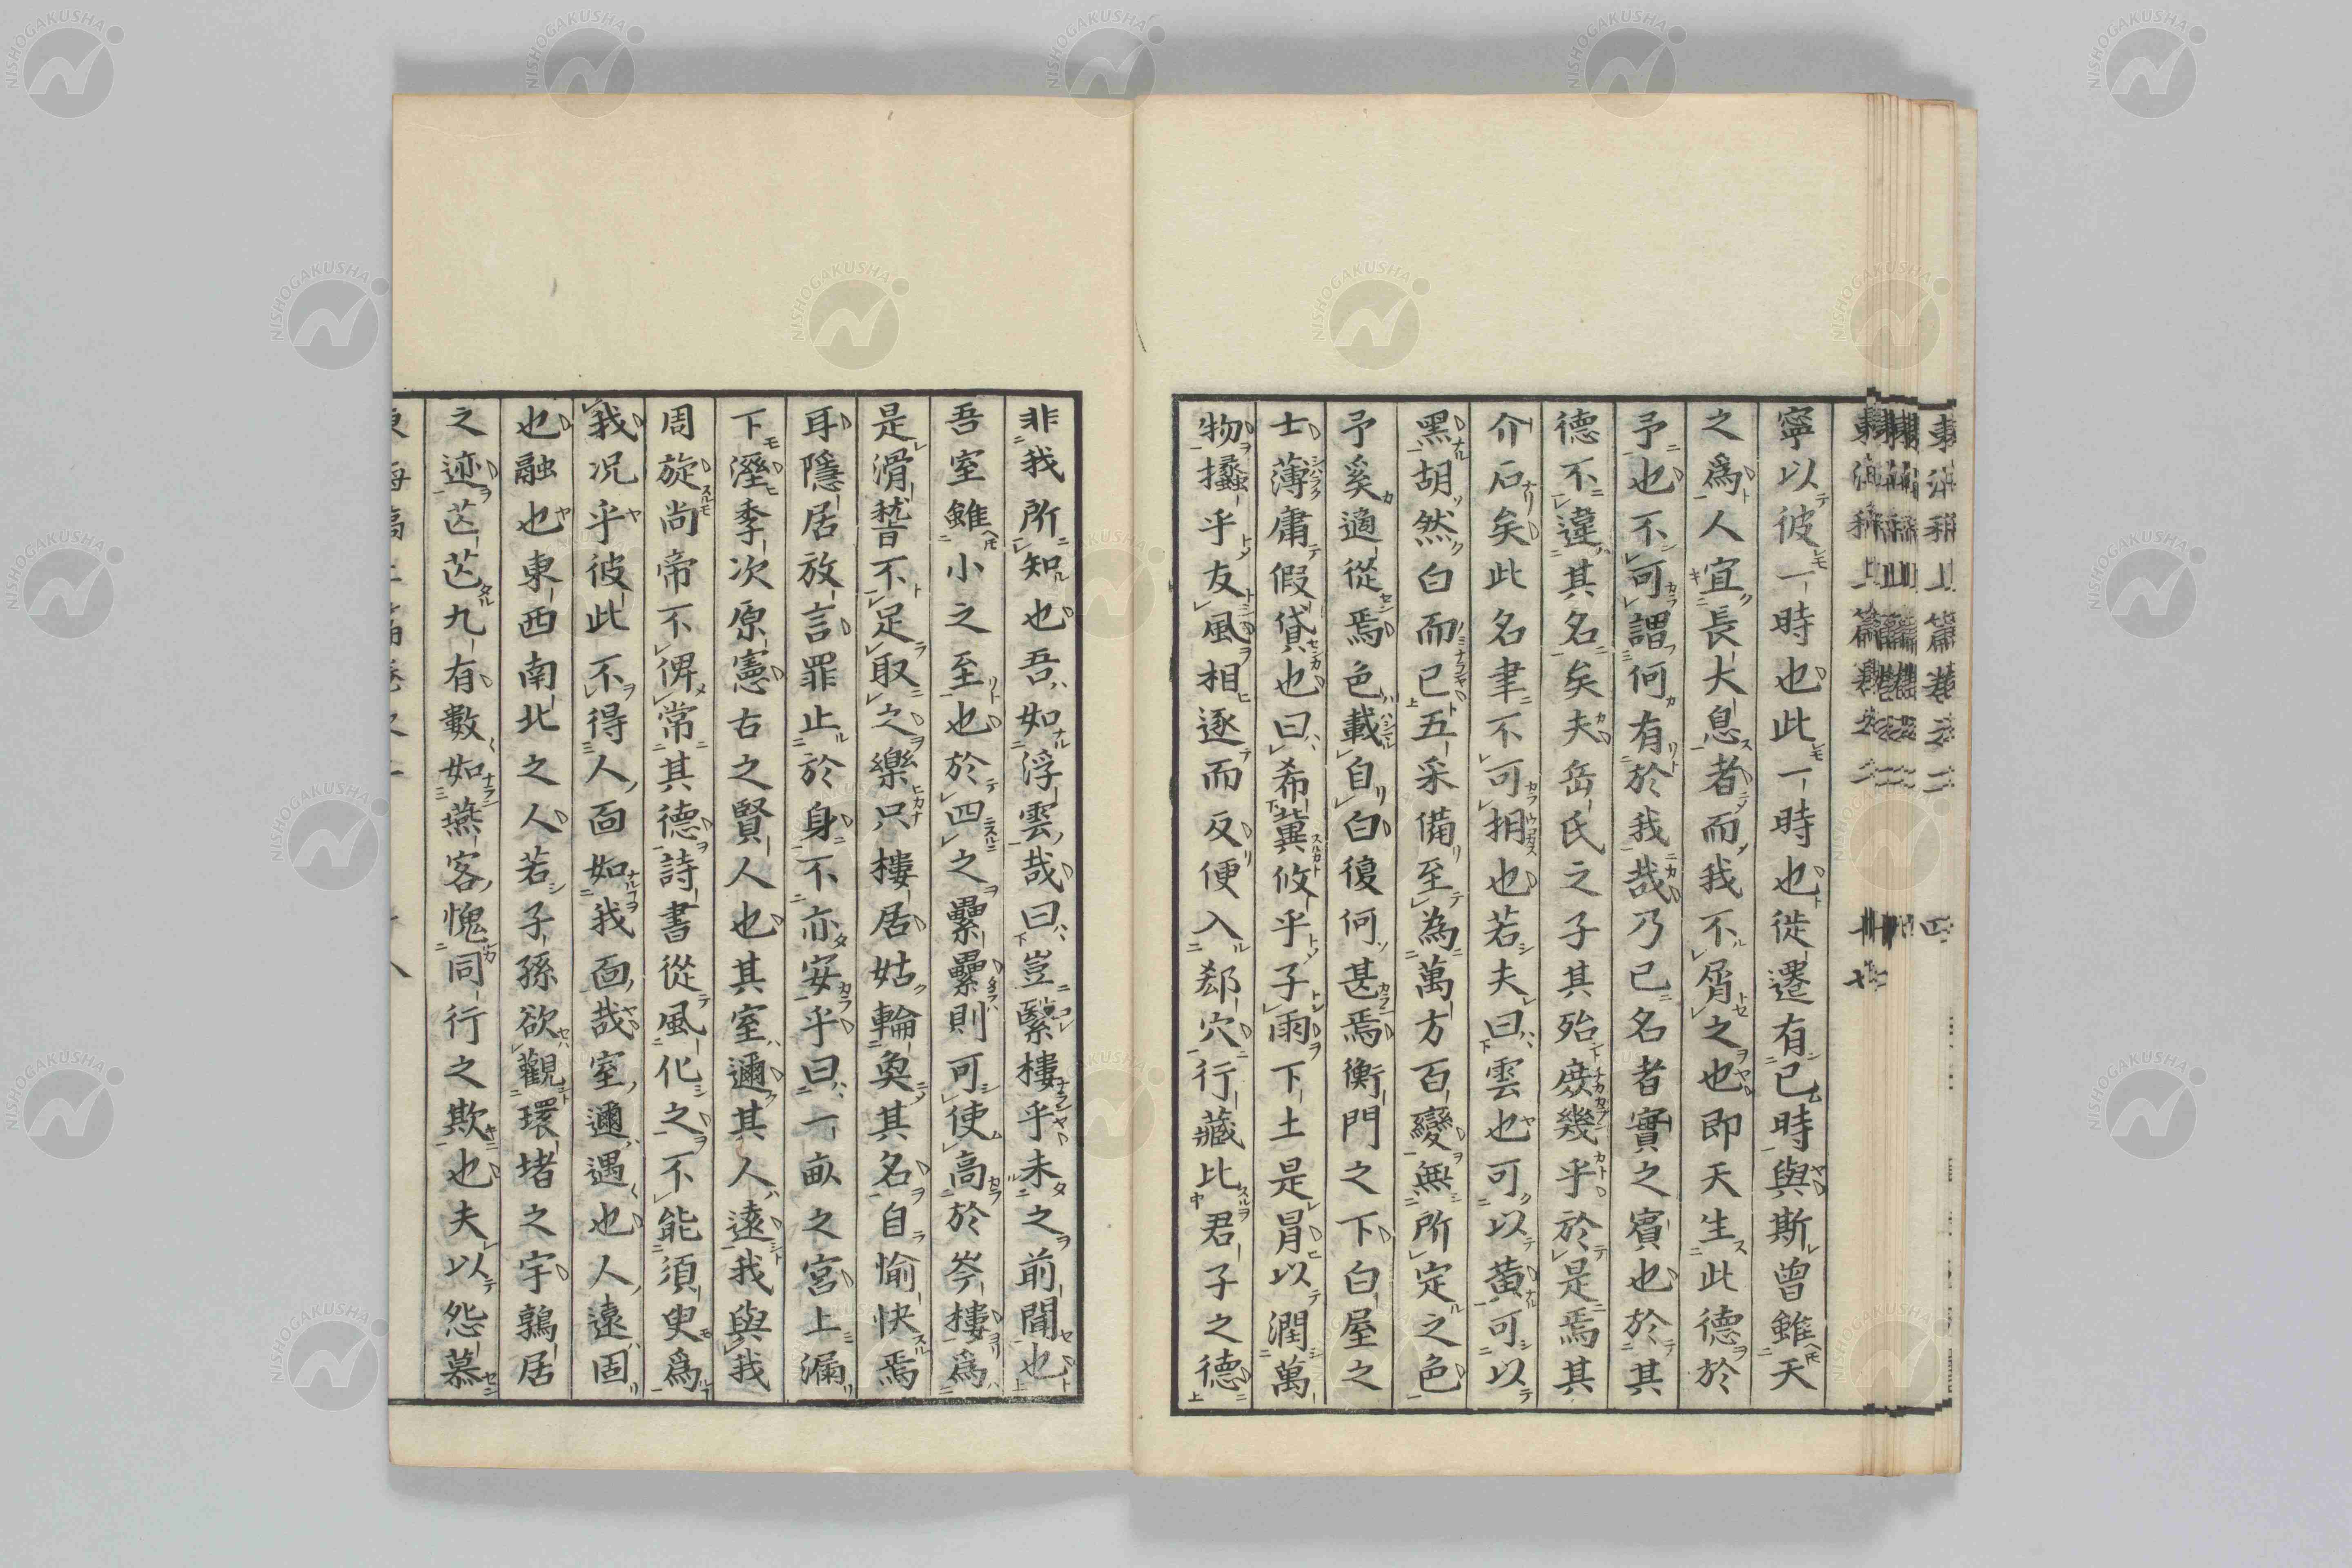 寧以彼一時也此一時也徙遷有已時與斯曾雖天
之爲人宜長大息者而我不屑之也即天生此德於
予也不可謂何有於我哉乃已名者實之賓也於其
德不違其名矣夫岳氏之子其殆庶幾乎於是焉其
介石矣此名聿不可拐也若夫曰雲也可以黄可以
黑胡然白而已五采備至為萬方百變無所定之色
予奚適從焉色載自白復何甚焉衡門之下白屋之
士薄庸假貸也曰希冀攸乎子雨下土是冐以潤萬
物擾乎友風相逐而反便入郄穴行藏比君子之德
非我所知也吾如浮雲哉曰豈繄樓乎未之前聞也
吾室雖小之至也於四之纍纍則可使高於岑樓爲
是滑稽不足取之樂只樓居姑輪奐其名自愉快焉
耳隱居放言罪止於身不亦安乎曰一畝之宮上漏
下溼季次原憲古之賢人也其室邇其人遠我與我
周旋尚帝不俾常其德詩書從風化之不能須臾爲
我况乎彼此不得人面如我面哉室邇遇也人遠固
也融也東西南北之人若子孫欲觀環堵之宇鶉居
之迹芒芒九有數如燕客愧同行之欺也夫以怨慕